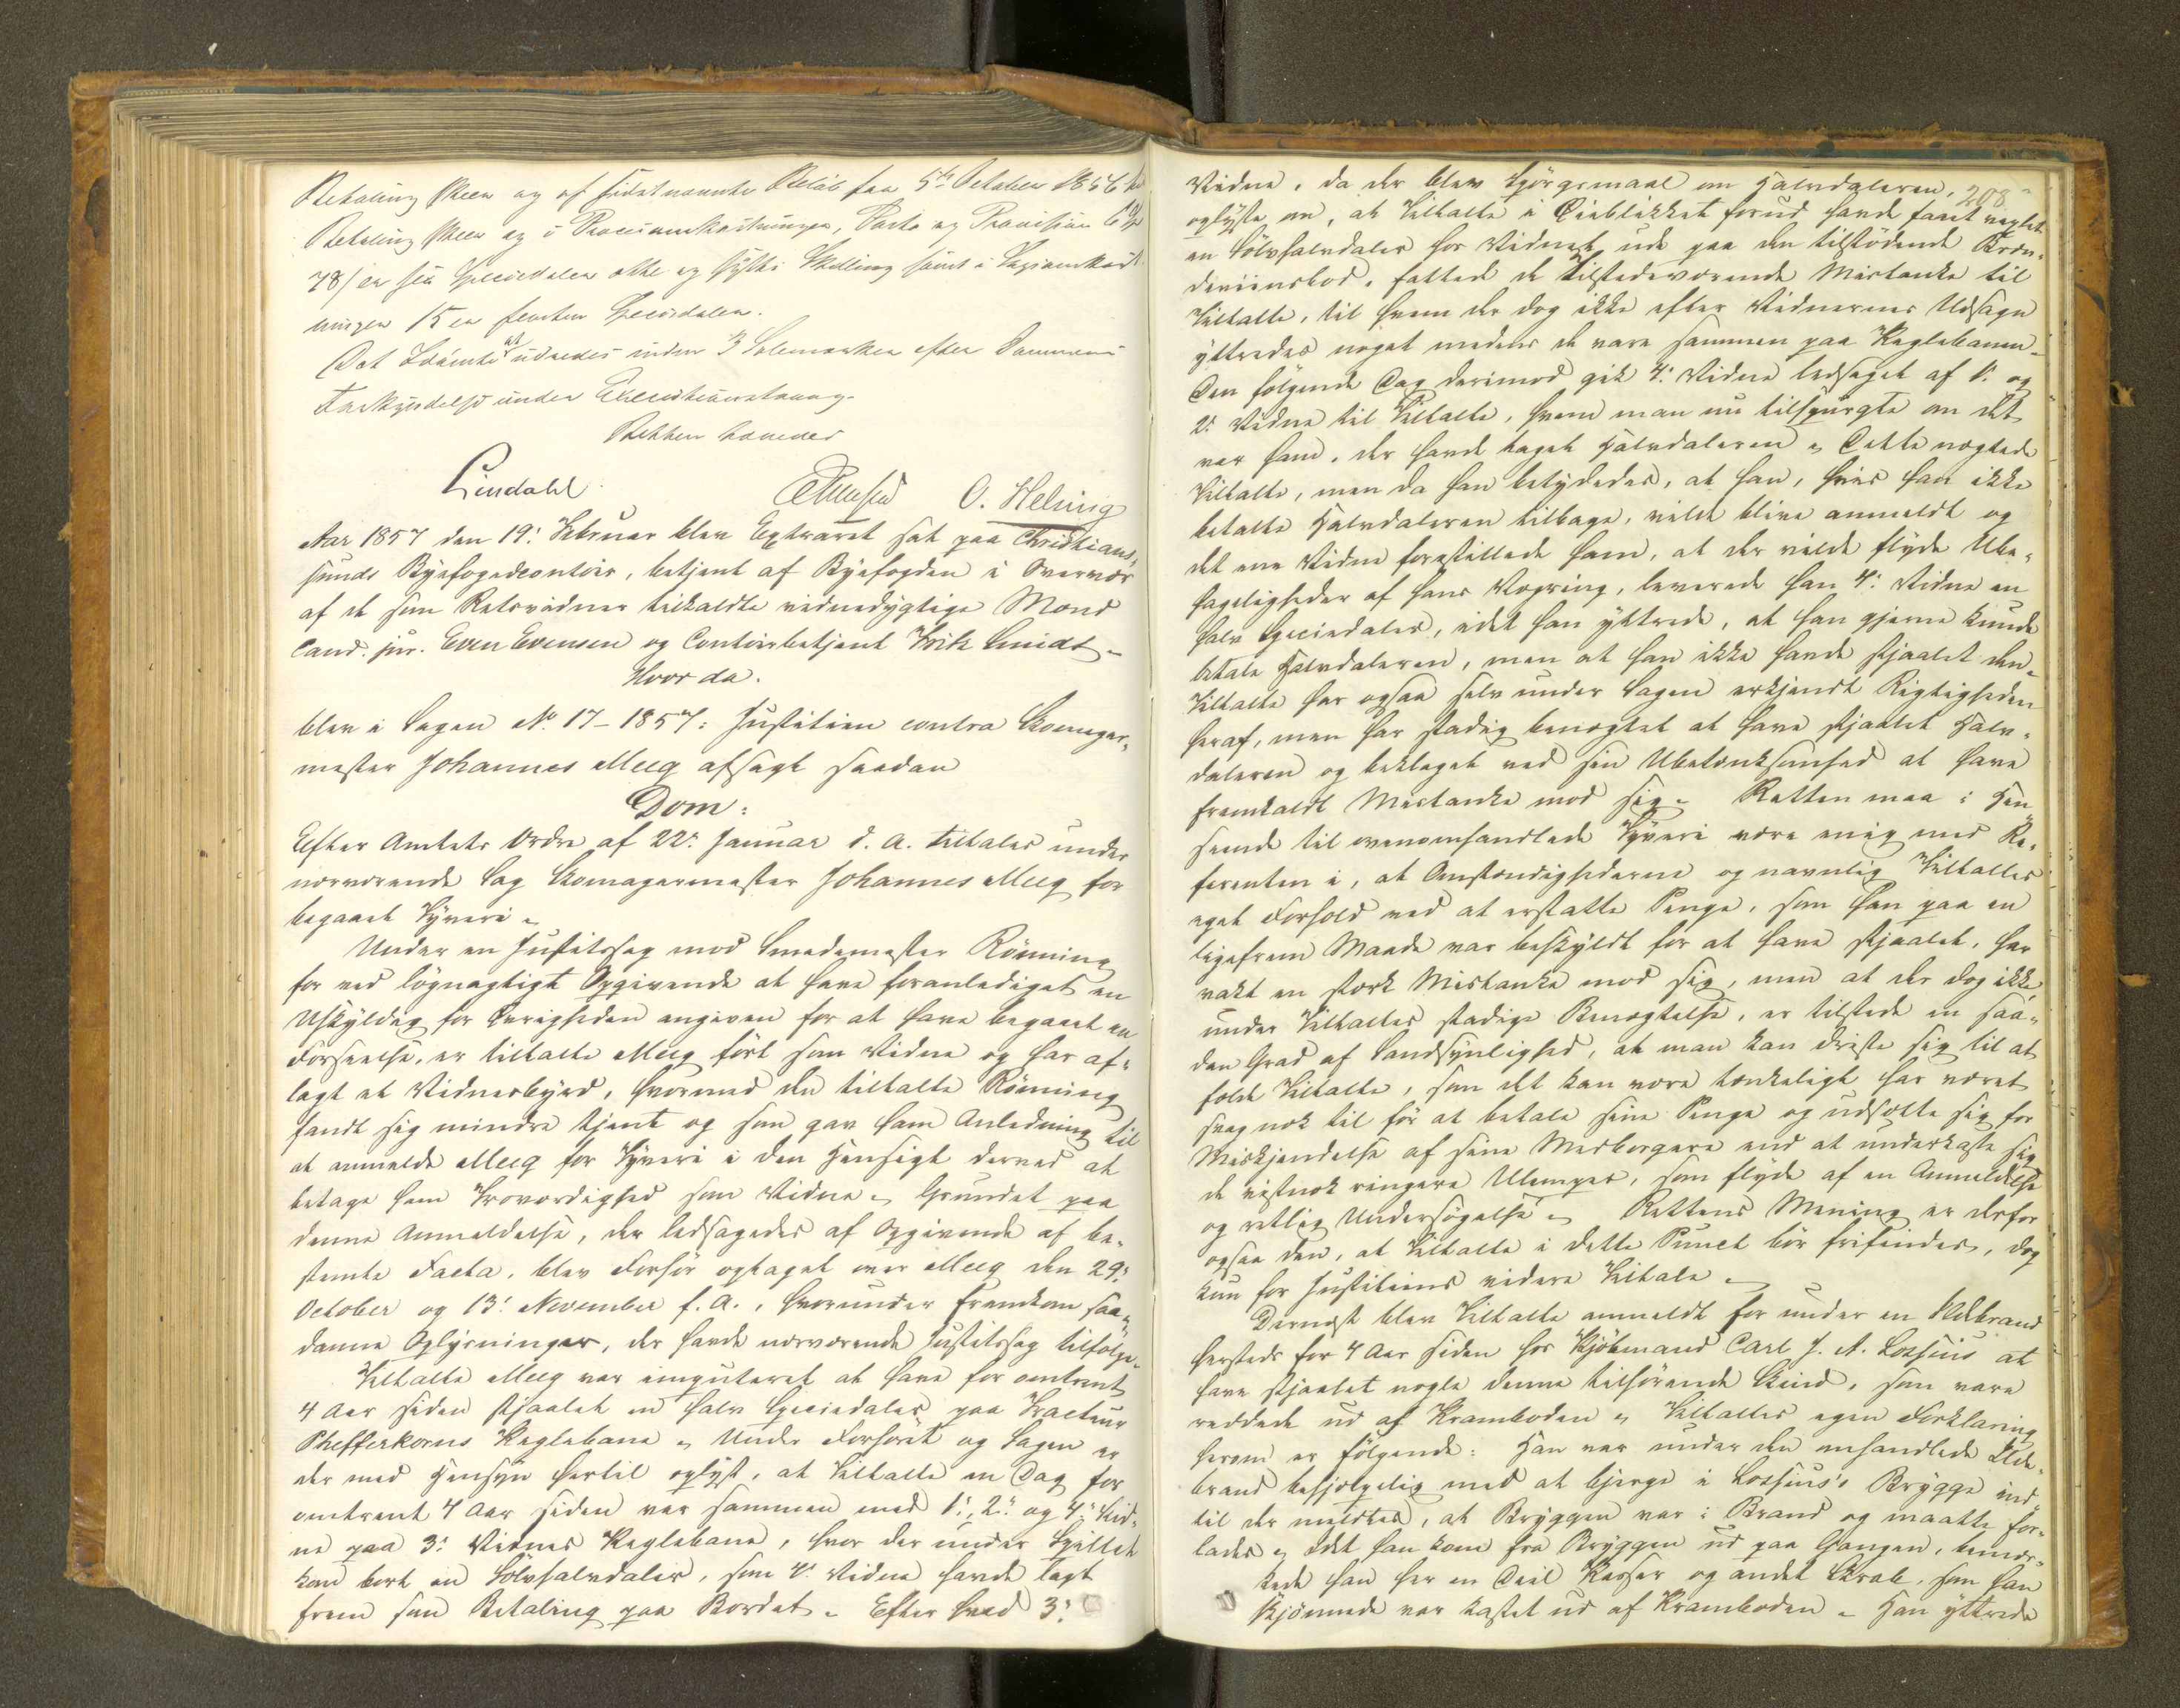 Betaling skeer og af sidstnævnte Beløb fra 5te October 1856 til
Betaling skeer og i Procesomkostninger, Porto og Provision 6 Sp
78/ er sex Speciedaler otte og sytti Skilling samt i Sagsomkost
ninger 15 er femten Speciedaler.
Det Idømte at udredes inden 3 Solemærker efter Dommens
Forkyndelse under Execution
Retten hævedes
Lindahl. O. Helsing
Aar 1857 den 19: Februar blev Extraret sat paa Christian,
sunds Byefogedcontoir, betjent af Byefogden i Overvær
af de som Retsvidner tilkaldte vidnedygtige Mænd
Cand. jur. Even Evensen og Contoirbetjent Fritz Smidt –
Hvor da.
blev i Sagen No 17–1857: Justitien contra Skomager,
mester Johannes Meeg afsagt saadan
Dom:
Efter Amtets Ordre af 22: Januar d. A. tiltales under
nærværende Sag Skomagermester Johannes Meeg for
begaaet Tyveri –
Under en Justitssag mod Smedemester Rönning
for ved lögnagtigt Opgivende at have foranlediget en
Uskyldig for Øvrigheden angiven for at have begaaet en
Forseelse, er tiltalte Meeg fört som Vidne og har af,
lagt et Vidnesbyrd, hvormed den tiltalte Rönning
fandt sig mindre tjent og som gav ham Anledning til
at anmelde Meeg for Tyveri i den Hensigt derved at
betage ham Troværdighed som Vidne – Grundet paa
denne Anmeldelse, der ledsagedes af Opgivende af be,
stemte Facta, blev Forhör optaget over Meeg den 29:
October og 13: November f. A., hvorunder fremkom saa,
danne Oplysninger, der havde nærværende Justitssag tilfölge.
Tiltalte Meeg var imputeret at have for omtrent
4 Aar siden stjaalet en halv Speciedaler paa Tracteur
Pfefferkorns Keglebane – Under Forhöret og Sagen er
der med Hensyn hertil oplyst, at Tiltalte en Dag for
omtrent 4 Aar siden var sammen med 1:, 2: og 4: Vid,
ne paa 3: Vidnes Keglebane, hvor der under Spillet
kom bort en Sölvhalvdaler, som 4: Vidne havde lagt
frem som Betaling paa Bordet – Efter hvad 3:
208
Vidne, da der blev Spörgsmaal om Halvdaleren,
oplyste om, at Tiltalte i Öieblikket forud havde faaet vexlet
en Sölvhalvdaler hos Vidnet ude paa den tilstödende Bræn,
deviinsbod, fattede de Tilstedeværende Mistanke til
Tiltalte, til hvem der dog ikke efter Vidnernes Udsagn
yttredes noget medens de vare sammen paa Keglebanen –
Den fölgende Dag derimod gik 4: Vidne ledsaget af 1: og
2: Vidne til Tiltalte, hvem man nu tilspurgte om det
var ham, der havde taget Halvdaleren – Dette nægtede
Tiltalte, men da han betydedes, at han, hvis han ikke
betalte Halvdaleren tilbage, vilde blive anmeldt og
det ene Vidne forestillede ham, at der vilde flyde Ube,
hageligheder af hans Vægring, leverede han 4: Vidne en
halv Speciedaler, idet han yttrede, at han gjerne kunde
betale Halvdaleren, men at han ikke havde stjaalet den –
Tiltalte har ogsaa selv under Sagen erkjendt Rigtigheden
heraf, men har stadig benægtet at have stjaalet Halv,
daleren og beklaget ved sin Ubetænksomhed at have
fremkaldt Mistanke mod sig – Retten maa i Hen
seende til ovenomhandlede Tyveri være enig med Re,
ferenten i, at Omstændighederne og navnlig Tiltaltes
eget Forhold ved at erstatte Penge, som han paa en
ligefrem Maade var beskyldt for at have stjaalet, har
vakt en stærk Mistanke mod sig, men at der dog ikke
under Tiltaltes stadige Benægtelse, er tilstede en saa,
dan Grad af Sandsynlighed, at man kan driste sig til at
fælde Tiltalte, som det kan være tænkeligt har været
svag nok til för at betale sine Penge og udsætte sig for
Miskjendelse af sine Medborgere end at underkaste sig
de vistnok ringere Ulemper, som flyde af en Anmeldelse
og retlig Undersögelse – Rettens Mening er derfor
ogsaa den, at Tiltalte i dette Punct bör frifindes, dog
kun for Justitiens videre Tiltale –
Dernæst blev Tiltalte anmeldt for under en Ildebrand
hersteds for 4 Aar siden hos Kjöbmand Carl J. A. Lossius at
have stjaalet nogle denne tilhörende Skind, som vare
reddede ud af Kramboden – Tiltaltes egen Forklaring
herom er fölgende: Han var under den omhandlede Ilde,
brand behjelpelig med at bjerge i Lossius's Brygge ind
til der meldtes, at Bryggen var i Brand og maatte for,
lades – Idet han kom fra Bryggen ud paa Gangen, bemær,
kede han her en Deel Kasser og andet Skrab, som han
skjönnede var kastet ud af Kramboden – Han yttrede